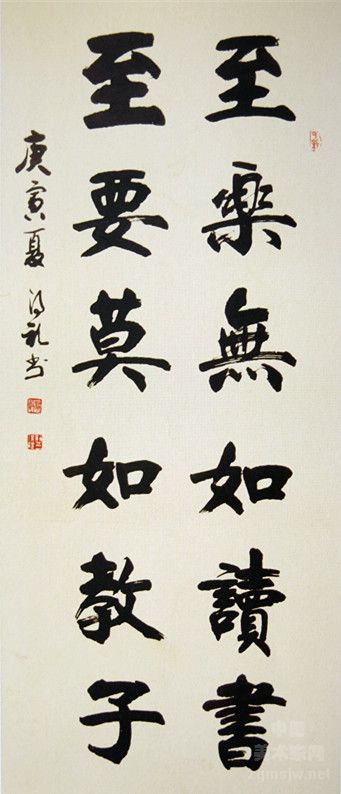 至樂無如讀書
至要莫如教子
庚寅夏 得礼书
中国
美术家网
zgmsjw.net